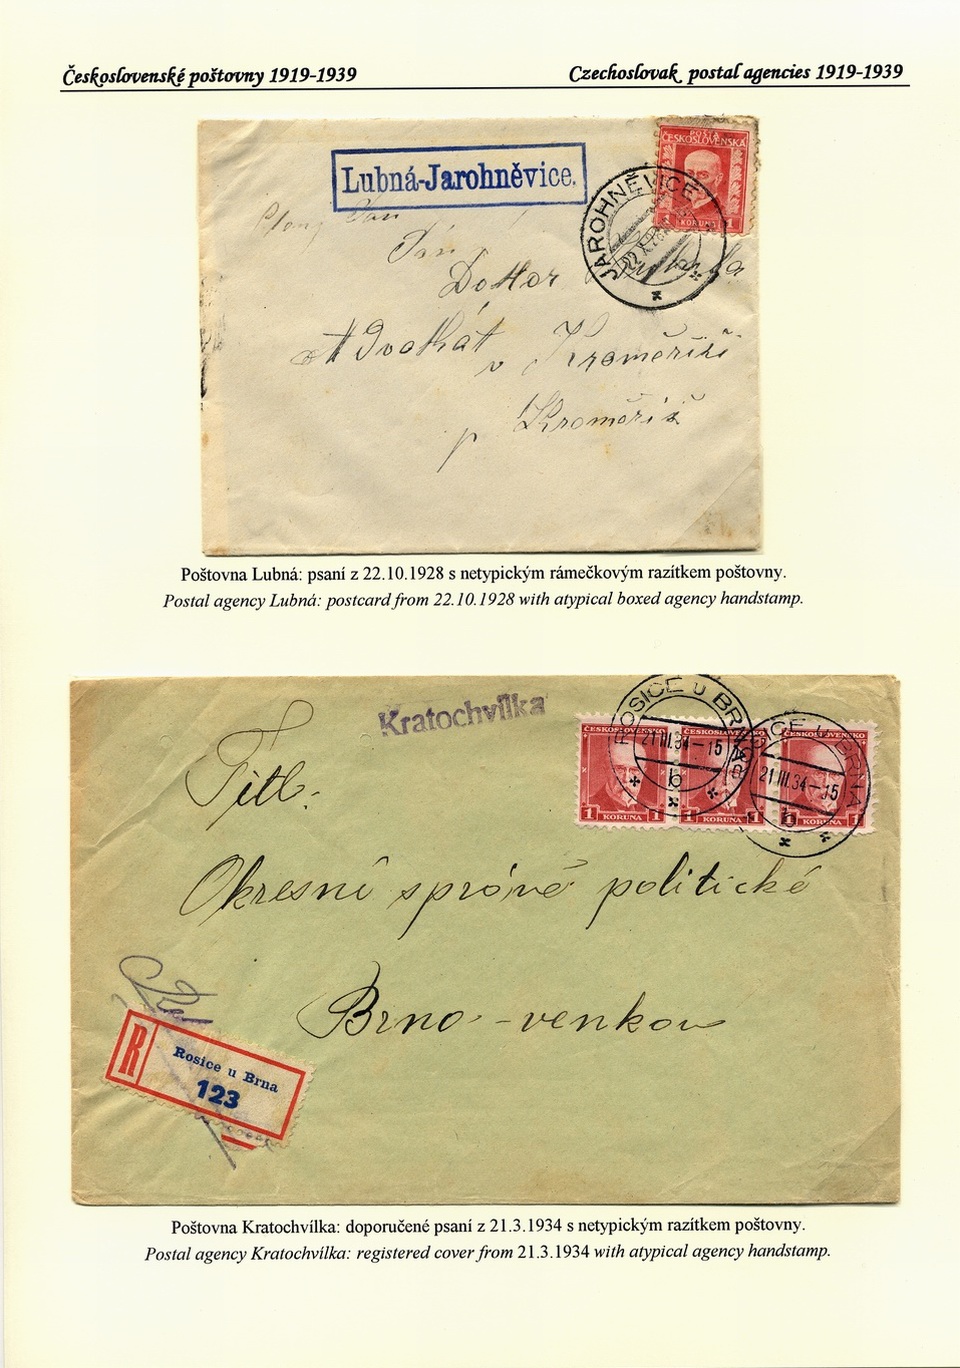 Československé poštovny 1919-1939
Czechoslovak postal agencies 1919-1939
Lubná-Jarohněvice.
POŠTA
ČESKOSLOVENSKÁ
1 KORUNA 1
JAROHNĚVICE
22.X.28
Pán
Doktor
Advokát v Kroměříži
p Kroměříž
Poštovna Lubná: psaní z 22.10.1928 s netypickým rámečkovým razítkem poštovny.
Postal agency Lubná: postcard from 22.10.1928 with atypical boxed agency handstamp.
Kratochvílka
ROSICE u BRNA
21.III.34-15
b
ČESKOSLOVENSKO
1 KORUNA 1
ČESKOSLOVENSKO
1 1
ROSICE u BRNA
21.III.34-15
b
ČESKOSLOVENSKO
KORUNA 1
Titl.
Okresní správě politické
Brno-venkov
R
Rosice u Brna
123
Poštovna Kratochvílka: doporučené psaní z 21.3.1934 s netypickým razítkem poštovny.
Postal agency Kratochvílka: registered cover from 21.3.1934 with atypical agency handstamp.